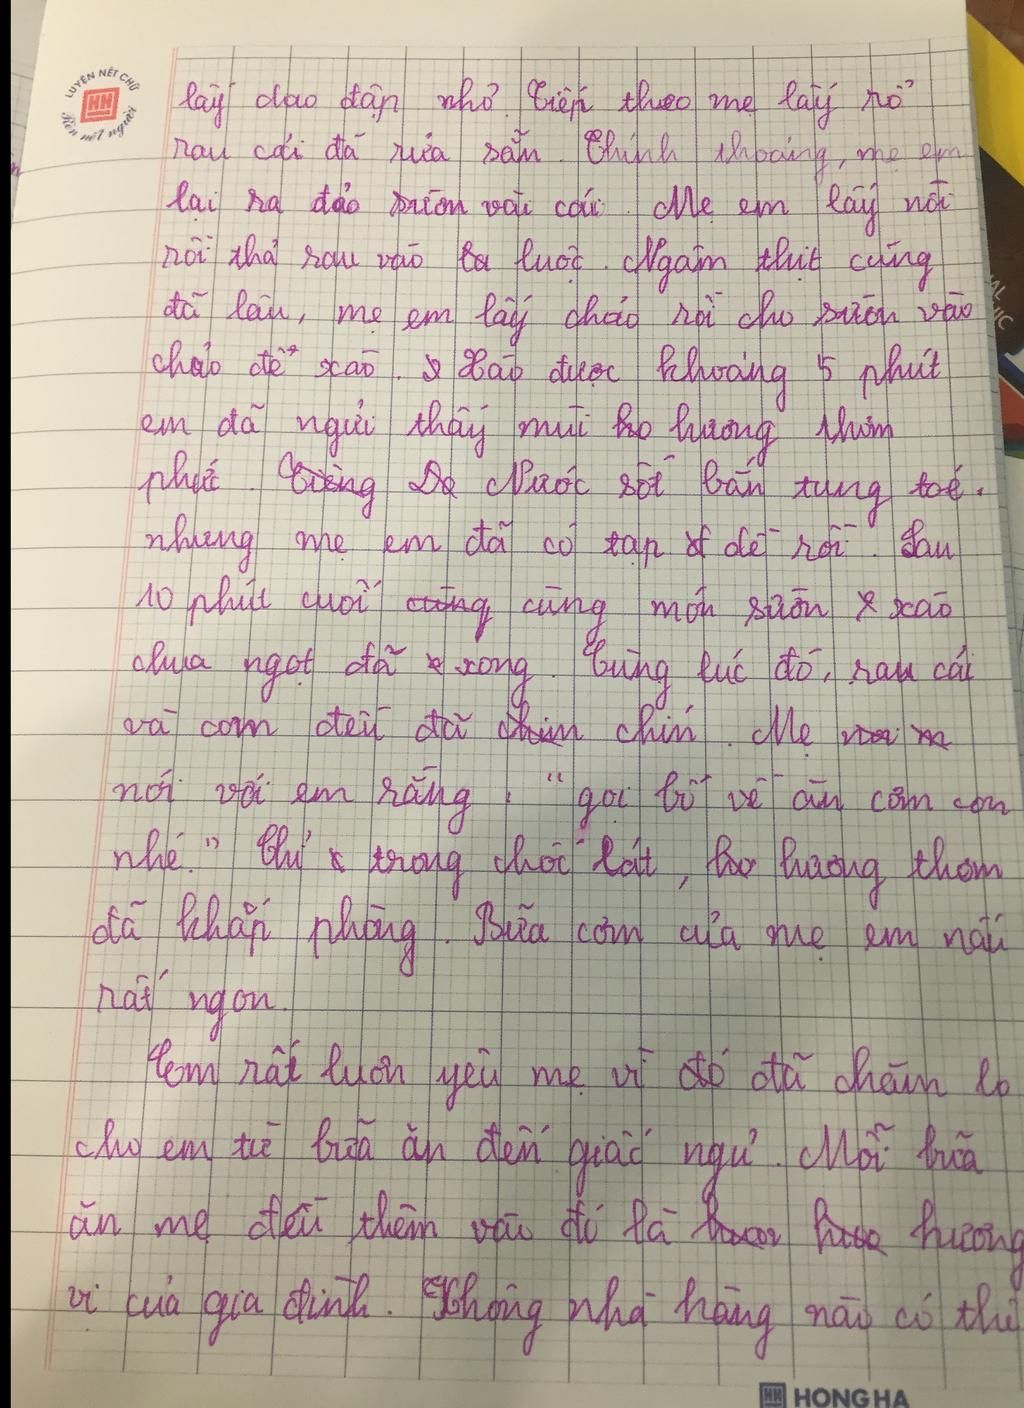 LUYỆN NÉT CHỮ
HH
Rèn nết người
lấy dao đập nhỏ. Tiếp theo mẹ lấy rổ
rau cải đã rửa sẵn. Thỉnh thoảng, mẹ em
lại ra đảo sườn vài cái. Mẹ em lấy nồi
rồi thả rau vào luộc. Ngâm thịt cũng
đã lâu, mẹ em lấy chảo rồi cho sườn vào
chảo để xào. Xào được khoảng 5 phút
em đã ngửi thấy mùi hương thơm
phức. Nước sốt bắn tung toé.
nhưng mẹ em đã có tạp dề rồi. Sau
10 phút cuối cùng món sườn xào
chua ngọt đã xong. Cùng lúc đó, rau cải
và cơm đều đã chín. Mẹ
nói với em rằng: "gọi bố về ăn cơm con
nhé." Chỉ trong chốc lát, hương thơm
đã khắp phòng. Bữa cơm của mẹ em nấu
rất ngon.
Em rất luôn yêu mẹ vì đó đã chăm lo
cho em từ bữa ăn đến giấc ngủ. Mỗi bữa
ăn mẹ đều thêm vào đó là hương
vị của gia đình. Không nhà hàng nào có thể
HH HONG HA